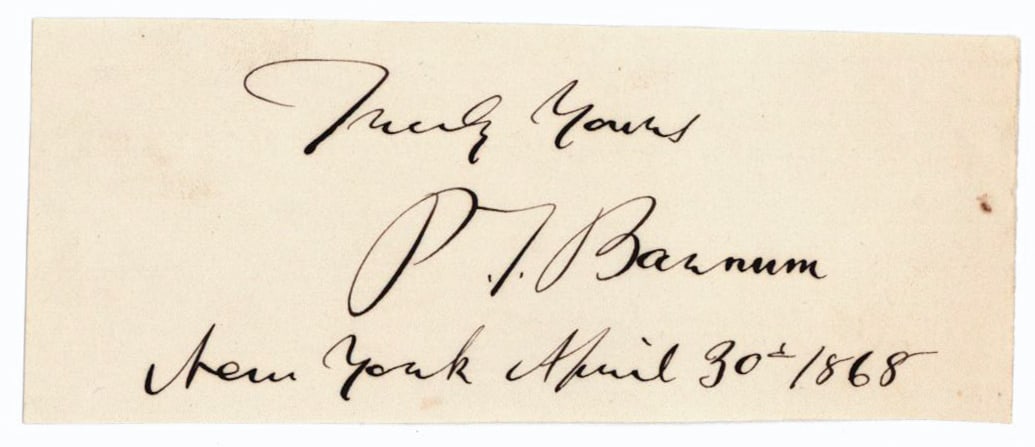 Truly Yours
P. T. Barnum
New York April 30th 1868